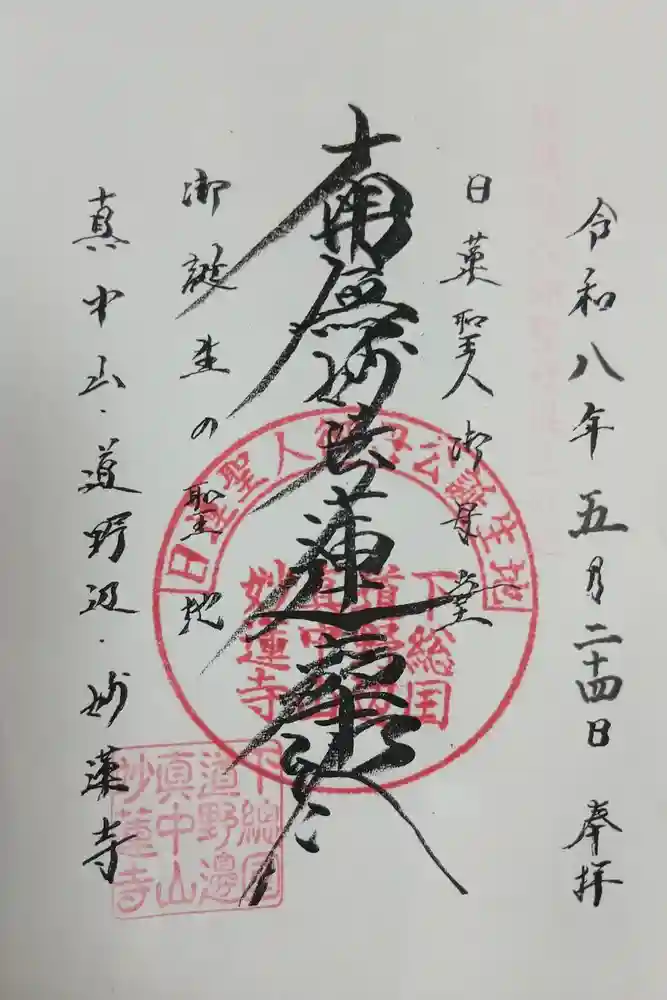 令和八年五月二十四日 奉拝
日蓮聖人御母堂
南無妙法蓮華経
御誕生の聖地
真中山・道野辺・妙蓮寺
日蓮聖人御母公誕生地
下総国
道野辺
真中山
妙蓮寺
下総国
道野邊
真中山
妙蓮寺